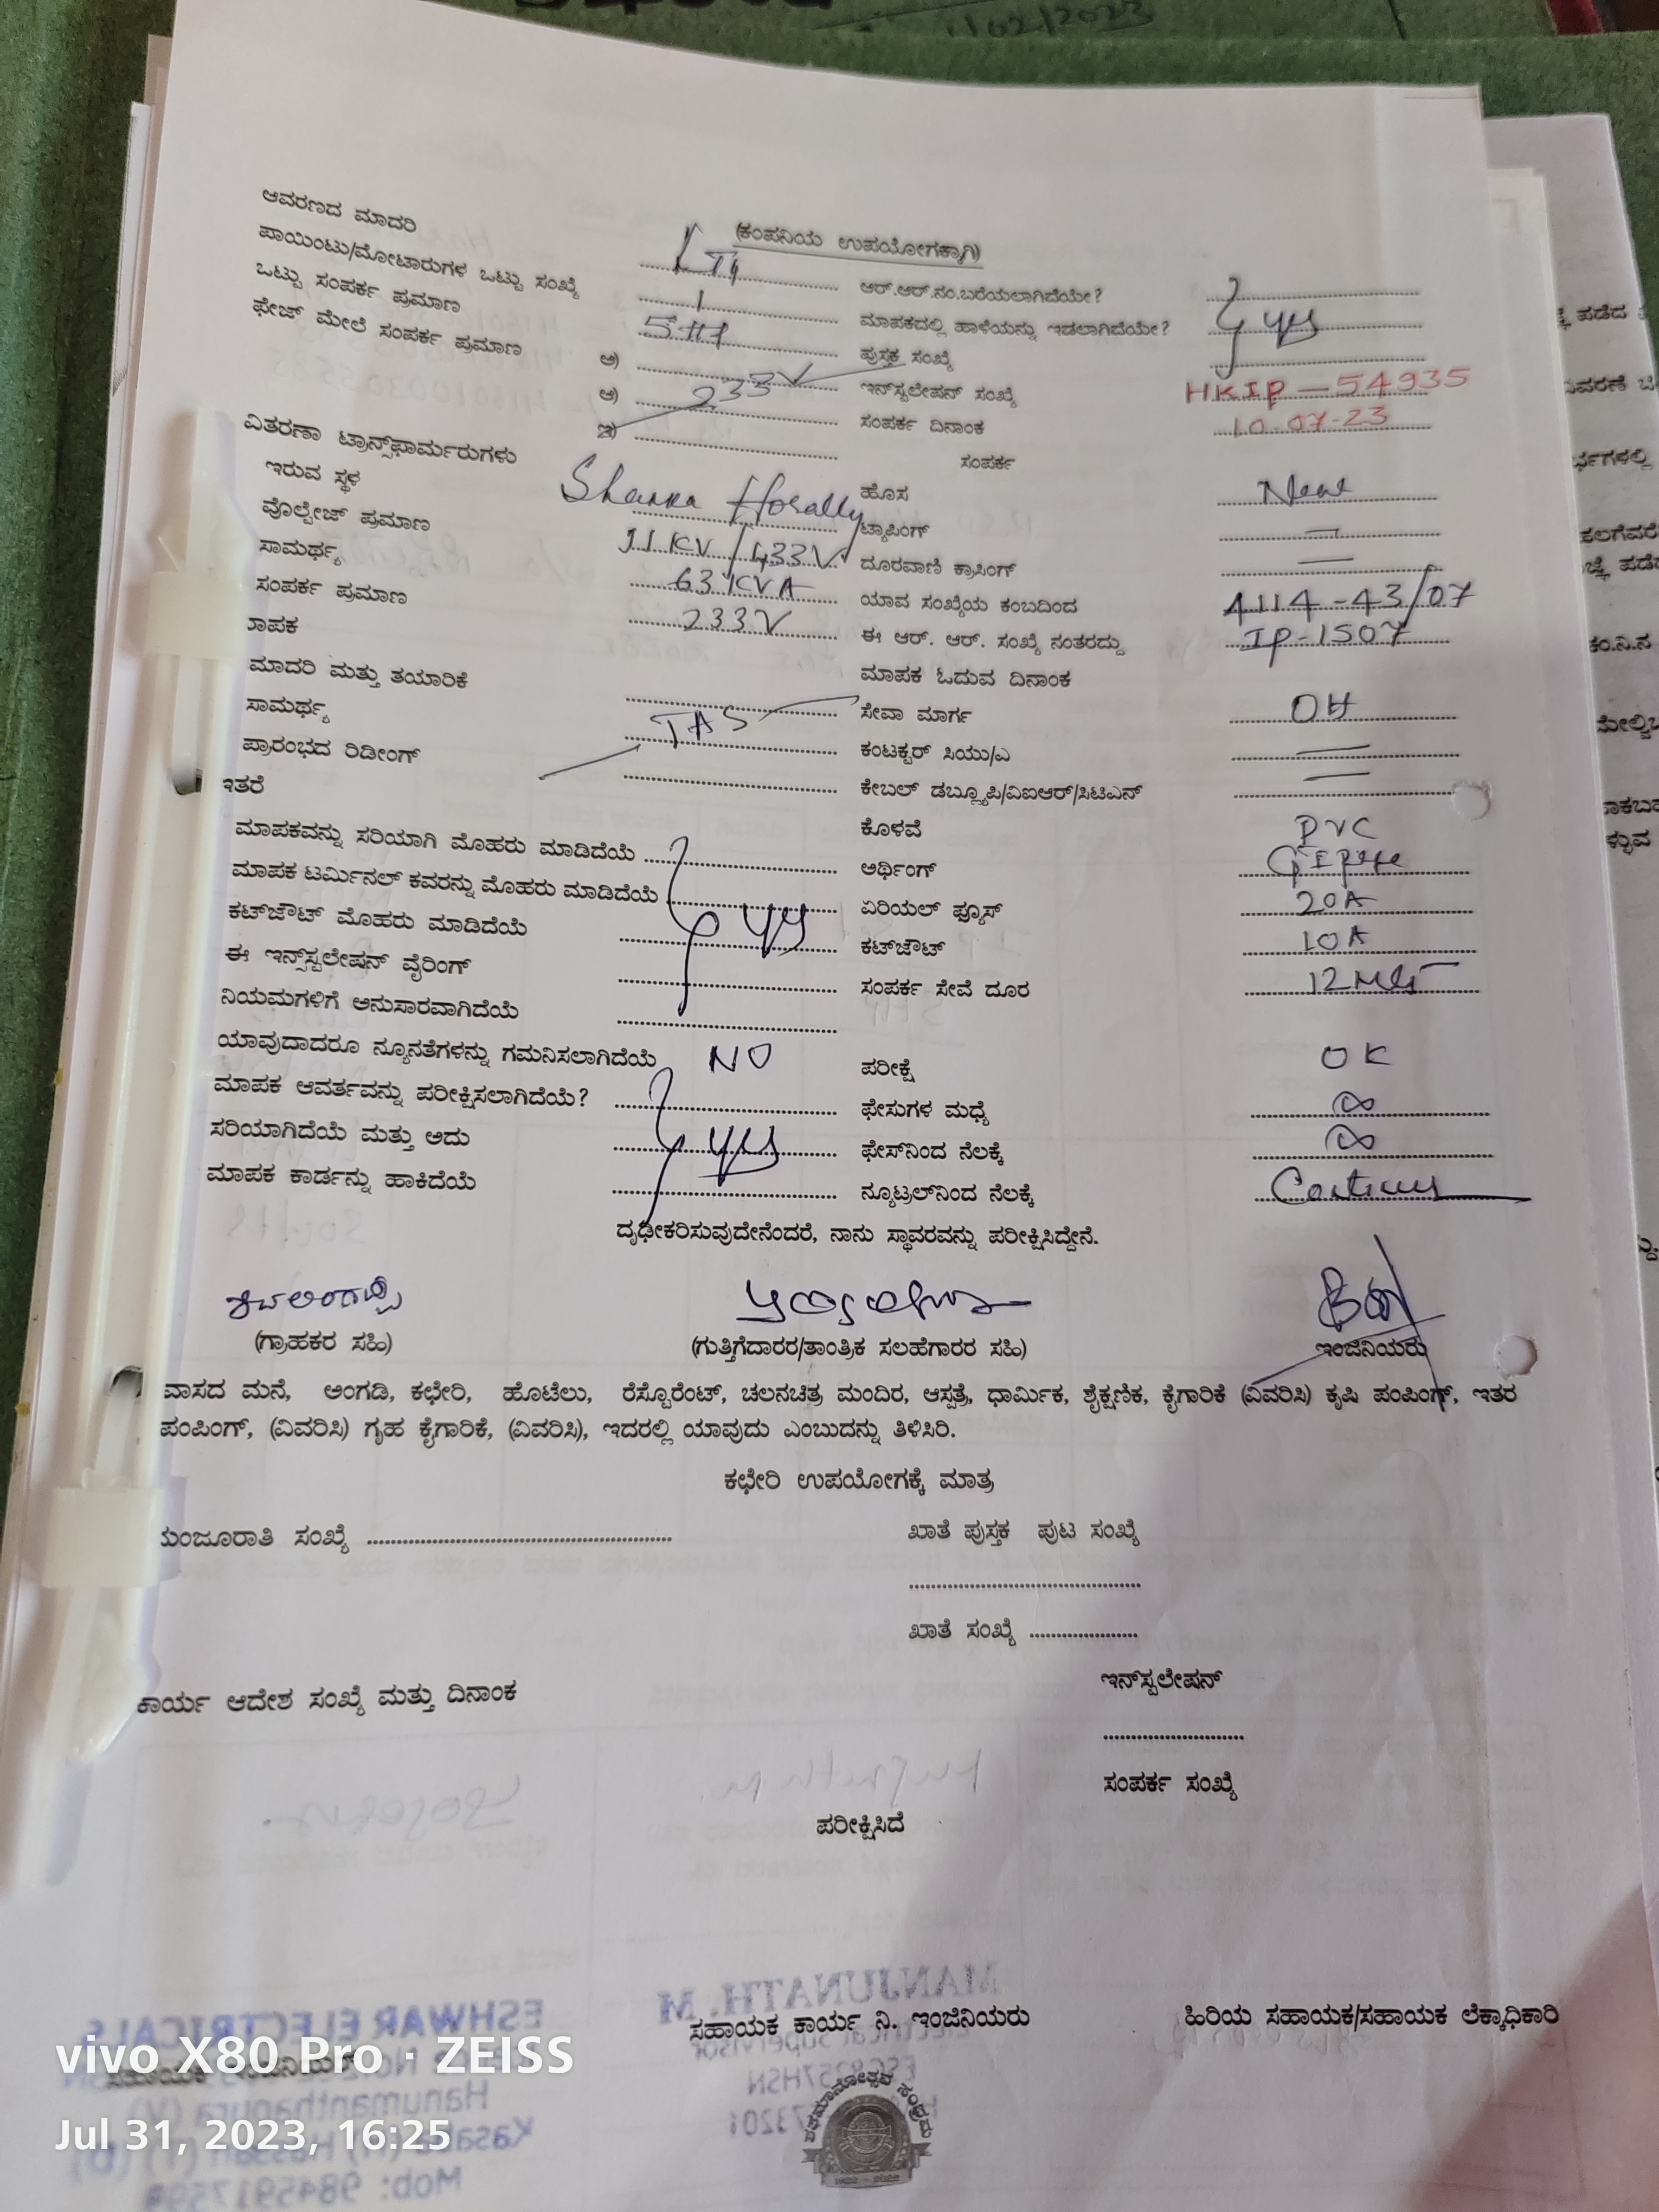 1/02/2023
(ಕಂಪನಿಯ ಉಪಯೋಗಕ್ಕಾಗಿ)
ಆವರಣದ ಮಾದರಿ
ಪಾಯಿಂಟು/ಮೋಟಾರುಗಳ ಒಟ್ಟು ಸಂಖ್ಯೆ 1
ಒಟ್ಟು ಸಂಪರ್ಕ ಪ್ರಮಾಣ
ಫೇಜ್ ಮೇಲೆ ಸಂಪರ್ಕ ಪ್ರಮಾಣ
ಅ)
ಆ) 233V
ಇ)
ವಿತರಣಾ ಟ್ರಾನ್ಸ್‌ಫಾರ್ಮರುಗಳು
ಇರುವ ಸ್ಥಳ
ವೊಲ್ಟೇಜ್ ಪ್ರಮಾಣ 11 KV / 433V
ಸಾಮರ್ಥ್ಯ 63 KVA
ಸಂಪರ್ಕ ಪ್ರಮಾಣ 233V
ಮಾಪಕ
ಮಾದರಿ ಮತ್ತು ತಯಾರಿಕೆ
ಸಾಮರ್ಥ್ಯ TAS
ಪ್ರಾರಂಭದ ರಿಡೀಂಗ್
ಇತರೆ
ಮಾಪಕವನ್ನು ಸರಿಯಾಗಿ ಮೊಹರು ಮಾಡಿದೆಯೆ
ಮಾಪಕ ಟರ್ಮಿನಲ್ ಕವರನ್ನು ಮೊಹರು ಮಾಡಿದೆಯೆ
ಕಟ್‌ಔಟ್ ಮೊಹರು ಮಾಡಿದೆಯೆ yes
ಈ ಇನ್ಸ್‌ಸ್ಟಲೇಷನ್ ವೈರಿಂಗ್
ನಿಯಮಗಳಿಗೆ ಅನುಸಾರವಾಗಿದೆಯೆ
ಯಾವುದಾದರೂ ನ್ಯೂನತೆಗಳನ್ನು ಗಮನಿಸಲಾಗಿದೆಯೆ NO
ಮಾಪಕ ಆವರ್ತವನ್ನು ಪರೀಕ್ಷಿಸಲಾಗಿದೆಯೆ?
ಸರಿಯಾಗಿದೆಯೆ ಮತ್ತು ಅದು yes
ಮಾಪಕ ಕಾರ್ಡನ್ನು ಹಾಕಿದೆಯೆ
ಆರ್.ಆರ್.ನಂ.ಬರೆಯಲಾಗಿದೆಯೇ?
ಮಾಪಕದಲ್ಲಿ ಹಾಳೆಯನ್ನು ಇಡಲಾಗಿದೆಯೇ? yes
ಪುಸ್ತಕ ಸಂಖ್ಯೆ
ಇನ್‌ಸ್ಟಲೇಷನ್ ಸಂಖ್ಯೆ HKIP – 54935
ಸಂಪರ್ಕ ದಿನಾಂಕ 10-07-23
ಸಂಪರ್ಕ
ಹೊಸ New
ಟ್ಯಾಪಿಂಗ್ –
ದೂರವಾಣಿ ಕ್ರಾಸಿಂಗ್ –
ಯಾವ ಸಂಖ್ಯೆಯ ಕಂಬದಿಂದ
ಈ ಆರ್. ಆರ್. ಸಂಖ್ಯೆ ನಂತರದ್ದು IP-1507
ಮಾಪಕ ಓದುವ ದಿನಾಂಕ
ಸೇವಾ ಮಾರ್ಗ OH
ಕಂಟಕ್ಟರ್ ಸಿಯು/ಎ
ಕೇಬಲ್ ಡಬ್ಲ್ಯೂಪಿ/ವಿಐಆರ್/ಸಿಟಿಎಸ್
ಕೊಳವೆ PVC
ಅರ್ಥಿಂಗ್ GI pipe
ಏರಿಯಲ್ ಫ್ಯೂಸ್ 20A
ಕಟ್‌ಔಟ್ 10A
ಸಂಪರ್ಕ ಸೇವೆ ದೂರ
ಪರೀಕ್ಷೆ OK
ಫೇಸುಗಳ ಮಧ್ಯೆ ∞
ಫೇಸ್‌ನಿಂದ ನೆಲಕ್ಕೆ ∞
ನ್ಯೂಟ್ರಲ್‌ನಿಂದ ನೆಲಕ್ಕೆ
ದೃಢೀಕರಿಸುವುದೇನೆಂದರೆ, ನಾನು ಸ್ಥಾವರವನ್ನು ಪರೀಕ್ಷಿಸಿದ್ದೇನೆ.
(ಗ್ರಾಹಕರ ಸಹಿ) (ಗುತ್ತಿಗೆದಾರರ/ತಾಂತ್ರಿಕ ಸಲಹೆಗಾರರ ಸಹಿ) ಇಂಜಿನಿಯರು
ವಾಸದ ಮನೆ, ಅಂಗಡಿ, ಕಛೇರಿ, ಹೊಟೆಲು, ರೆಸ್ಟೊರೆಂಟ್, ಚಲನಚಿತ್ರ ಮಂದಿರ, ಆಸ್ಪತ್ರೆ, ಧಾರ್ಮಿಕ, ಶೈಕ್ಷಣಿಕ, ಕೈಗಾರಿಕೆ (ವಿವರಿಸಿ) ಕೃಷಿ ಪಂಪಿಂಗ್, ಇತರ
ಪಂಪಿಂಗ್, (ವಿವರಿಸಿ) ಗೃಹ ಕೈಗಾರಿಕೆ, (ವಿವರಿಸಿ), ಇದರಲ್ಲಿ ಯಾವುದು ಎಂಬುದನ್ನು ತಿಳಿಸಿರಿ.
ಕಛೇರಿ ಉಪಯೋಗಕ್ಕೆ ಮಾತ್ರ
ಮಂಜೂರಾತಿ ಸಂಖ್ಯೆ
ಖಾತೆ ಪುಸ್ತಕ ಪುಟ ಸಂಖ್ಯೆ
ಖಾತೆ ಸಂಖ್ಯೆ
ಇನ್‌ಸ್ಟಲೇಷನ್
ಕಾರ್ಯ ಆದೇಶ ಸಂಖ್ಯೆ ಮತ್ತು ದಿನಾಂಕ
ಸಂಪರ್ಕ ಸಂಖ್ಯೆ
ಪರೀಕ್ಷಿಸಿದೆ
ಸಹಾಯಕ ಕಾರ್ಯ ನಿ. ಇಂಜಿನಿಯರು ಹಿರಿಯ ಸಹಾಯಕ/ಸಹಾಯಕ ಲೆಕ್ಕಾಧಿಕಾರಿ
vivo X80 Pro · ZEISS
Jul 31, 2023, 16:25